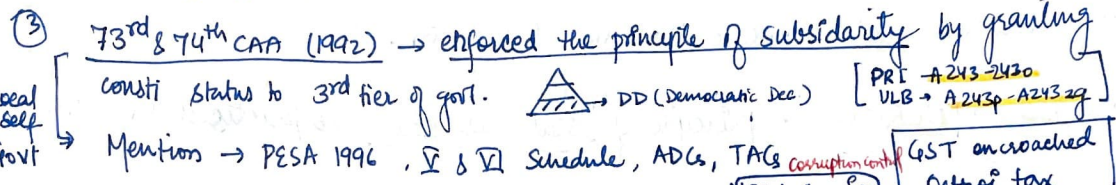 ③ 73rd & 74th CAA (1992) → enforced the principle of subsidarity by granting
consti status to 3rd tier of govt. → DD (Democratic Dec)
[PRI → A243-243O
ULB → A243P - A243ZG]
self
govt
Mentions → PESA 1996, V & VI Schedule, ADCs, TACs
GST encroached